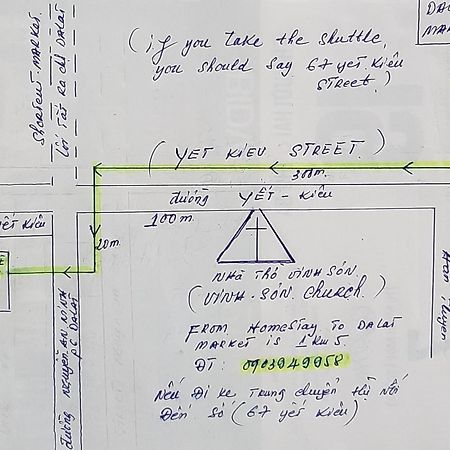 DALA
MAR
(if you take the shuttle,
you should say 67 yết kiêu
STREET.)
SHORTCUT-MARKET
Lối TẮT RA CHỢ DALAT
(YET KIEU STREET.)
300m.
đường YẾT-KIÊU
100m.
yết Kiêu
20m.
NHÀ THỜ VINH SƠN
(VINH-SƠN Church.)
FROM HomeStay TO DALAT
MARKET is 1 km 5
ĐT: 0903949958
Nếu Đi xe Trung chuyển thì Nói
ĐẾN Số (67 yết Kiêu)
đường NGUYỄN AN NINH
P6 DALAT